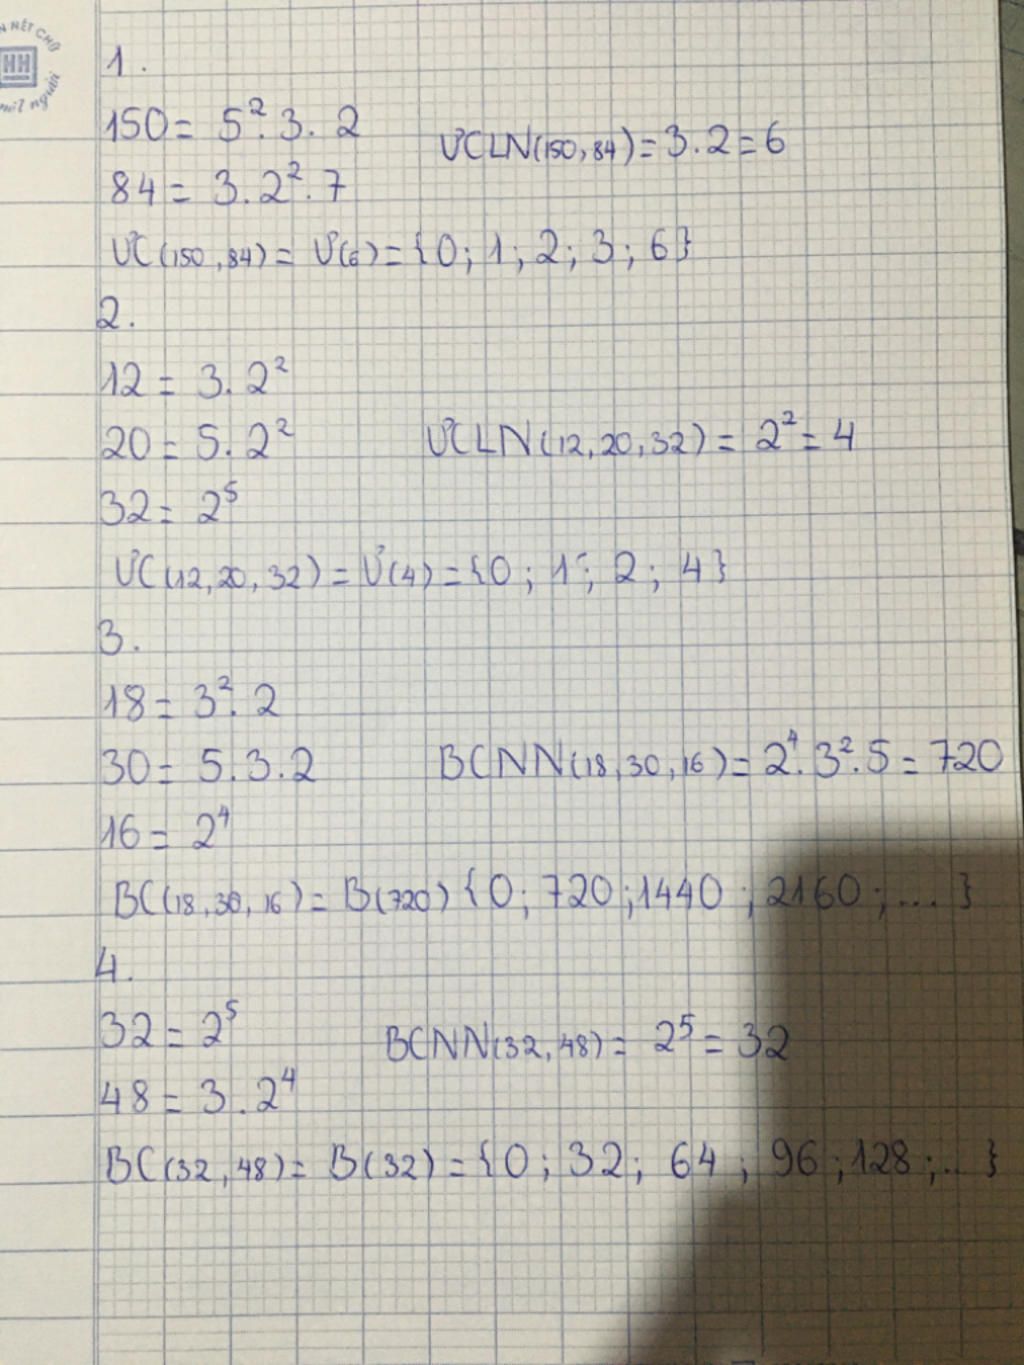 N NÉT CHỮ
HH
nết người
1.
150 = 5². 3. 2
ƯCLN(150, 84) = 3. 2 = 6
84 = 3. 2². 7
ƯC(150, 84) = Ư(6) = {0; 1; 2; 3; 6}
2.
12 = 3. 2²
20 = 5. 2²
ƯCLN(12, 20, 32) = 2² = 4
32 = 2⁵
ƯC(12, 20, 32) = Ư(4) = {0; 1; 2; 4}
3.
18 = 3². 2
30 = 5. 3. 2
BCNN(18, 30, 16) = 2⁴. 3². 5 = 720
16 = 2⁴
BC(18, 30, 16) = B(720) {0; 720; 1440; 2160; ...}
4.
32 = 2⁵
BCNN(32, 48) = 2⁵ = 32
48 = 3. 2⁴
BC(32, 48) = B(32) = {0; 32; 64; 96; 128; ..}